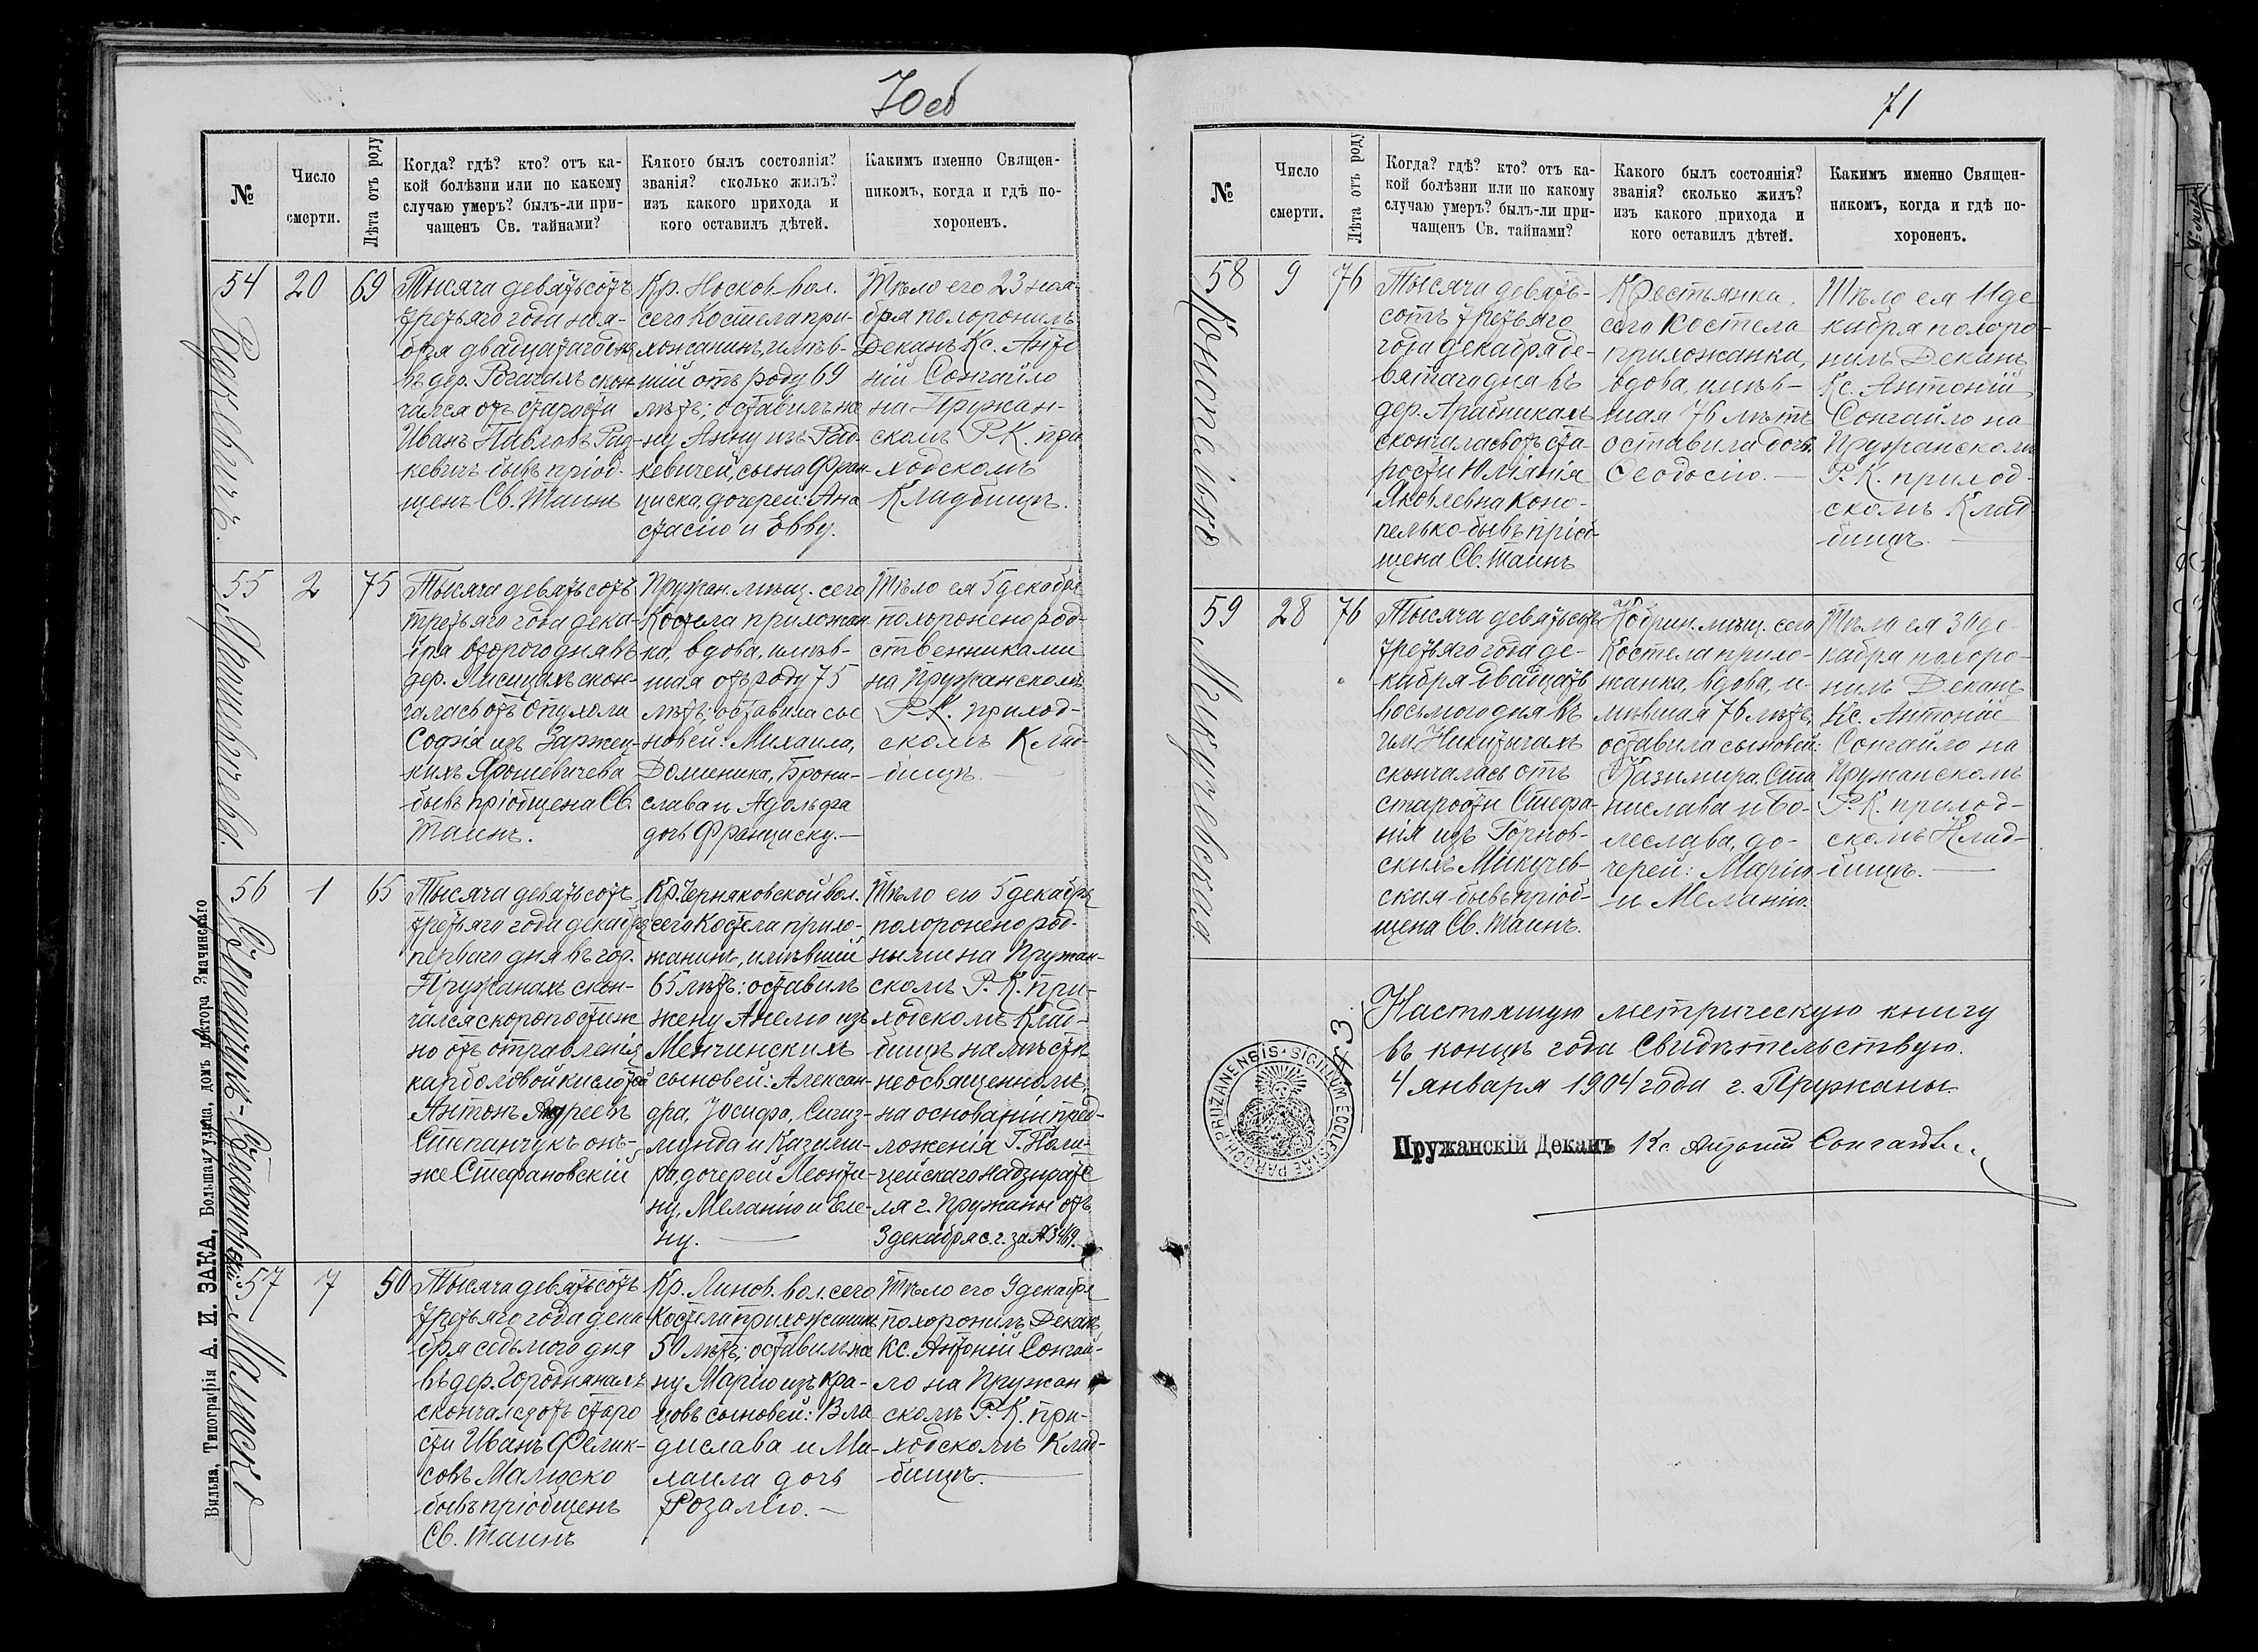 70 об
№
Число
смерти.
Лѣта отъ роду
Когда? гдѣ? кто? отъ ка-
кой болѣзни или по какому
случаю умеръ? былъ-ли при-
чащенъ Св. тайнами?
Какого былъ состоянія?
званія? сколько жилъ?
изъ какого прихода и
кого оставилъ дѣтей.
Какимъ именно Священ-
никомъ, когда и гдѣ по-
хороненъ.
54
Радкевичъ.
20
69
Тысяча девятьсотъ
третьяго года ноя-
бря двадцатаго дня
въ дер. Рогачахъ скон-
чался отъ старости
Иванъ Павловъ Рад-
кевичъ бывъ пріоб-
щенъ Св. Таинъ
Кр. Носков. вол.
сего Костела при-
хожанинъ, имѣв-
шій отъ роду 69
лѣтъ; оставилъ же-
ну Анну изъ Рад-
кевичей, сына Фран-
циска, дочерей: Ана
стасію и Евву.
Тѣло его 23 ноя-
бря похоронилъ
Деканъ Кс. Анто
ній Сонгайло
на Пружан-
скомъ Р.К. при
ходскомъ
Кладбищѣ.
55
Ярошевичева.
2
75
Тысяча девятьсотъ
третьяго года дека-
бря второго дня въ
дер. Лисицахъ скон-
чалась отъ опухоли
Софія изъ Заржец-
кихъ Ярошевичева
бывъ пріобщена Св.
Таинъ.
Пружан. мѣщ. сего
Костела прихожан-
ка, вдова, имѣв-
шая отъ роду 75
лѣтъ; оставила сы-
новей: Михаила,
Доминика, Брони-
слава и Адольфа
дочь Франциску.—
Тѣло ея 5 декабря
похоронено род-
ственниками
на Пружанскомъ
Р.К. приход-
скомъ Клад-
бищѣ.—
56
Степанчукъ-Стефановскій.
1
65
Тысяча девятьсотъ
третьяго года декабря
перваго дня въ гор.
Пружанахъ скон-
чался скоропостиж
но отъ отравленія
карболовой кислотой
Антонъ Андреевъ
Степанчукъ онъ-
же Стефановскій
Кр. Черняковской вол.
сего Костела прихо-
жанинъ, имѣвшій
65 лѣтъ: оставилъ
жену Анелю изъ
Менчинскихъ
сыновей: Алексан-
дра, Іосифа, Сигиз-
мунда и Казими-
ра, дочерей Леонти-
ну, Меланію и Еле-
ну.—
Тѣло его 5 декабря
похоронено род-
ными на Пружан-
скомъ Р.К. при-
ходскомъ Клад-
бищѣ на мѣстѣ
неосвященномъ,
на основаніи пред-
ложенія Г. Поли-
цейскаго надзирате
ля г. Пружаны отъ
3 декабря с.г. за №3469.
57
Малюско
7
50
Тысяча девятьсотъ
третьяго года дека-
бря седьмого дня
въ дер. Городнянахъ
скончался отъ старо
сти Иванъ Фелик-
совъ Малюско
бывъ пріобщенъ
Св. Таинъ
Кр. Линов. вол. сего
Костела прихожанинъ
50 лѣтъ; оставилъ же
ну Марію изъ Кра-
цовъ сыновей: Вла
дислава и Ми-
хаила дочь
Розалію.—
Тѣло его 9 декабря
похоронилъ Деканъ
Кс. Антоній Сонгай-
ло на Пружан
скомъ Р.К. при-
ходскомъ Клад-
бищѣ.—
Вильна, Типографія А. И. ЗАКА, Большая улица, домъ доктора Змачинскаго
71
№
Число
смерти.
Лѣта отъ роду
Когда? гдѣ? кто? отъ ка-
кой болѣзни или по какому
случаю умеръ? былъ-ли при-
чащенъ Св. тайнами?
Какого былъ состоянія?
званія? сколько жилъ?
изъ какого прихода и
кого оставилъ дѣтей.
Какимъ именно Священ-
никомъ, когда и гдѣ по-
хороненъ.
58
Конопелько
9
76
Тысяча девять-
сотъ третьяго
года декабря де-
вятаго дня въ
дер. Арабникахъ
скончалась отъ ста-
рости Юліанія
Яковлевна Коно-
пелько бывъ пріоб-
щена Св. Таинъ
Крестьянка,
сего Костела
прихожанка,
вдова, имѣв-
шая 76 лѣтъ
оставила дочь
Ѳеодосію.—
Тѣло ея 11 де
кабря похоро-
нилъ Деканъ
Кс. Антоній
Сонгайло на
Пружанскомъ
Р.К. приход-
скомъ Клад
бищѣ.
59
Микучевская.
28
76
Тысяча девятьсотъ
третьяго года де-
кабря двадцать
восьмого дня въ
им. Никитичахъ
скончалась отъ
старости Стефа-
нія изъ Горнов-
скихъ Микучев-
ская бывъ пріоб-
щена Св. Таинъ.
Кобрин. мѣщ. сего
Костела прихо-
жанка, вдова, и-
мѣвшая 76 лѣтъ,
оставила сыновей:
Казимира, Ста
нислава и Бо-
леслава, до-
черей: Марію
и Меланію.
Тѣло ея 30 де-
кабря похоро-
нилъ Деканъ
Кс. Антоній
Сонгайло на
Пружанскомъ
Р.К. приход-
скомъ Клад-
бищѣ.—
Настоящую метрическую книгу
въ концѣ года свидѣтельствую.
4 января 1904 года г. Пружаны.
№ 3.
SIGILLUM ECCLESIAE PAROCH. PRUŻANENSIS
Пружанскій Деканъ Кс. Антоній Сонгайло